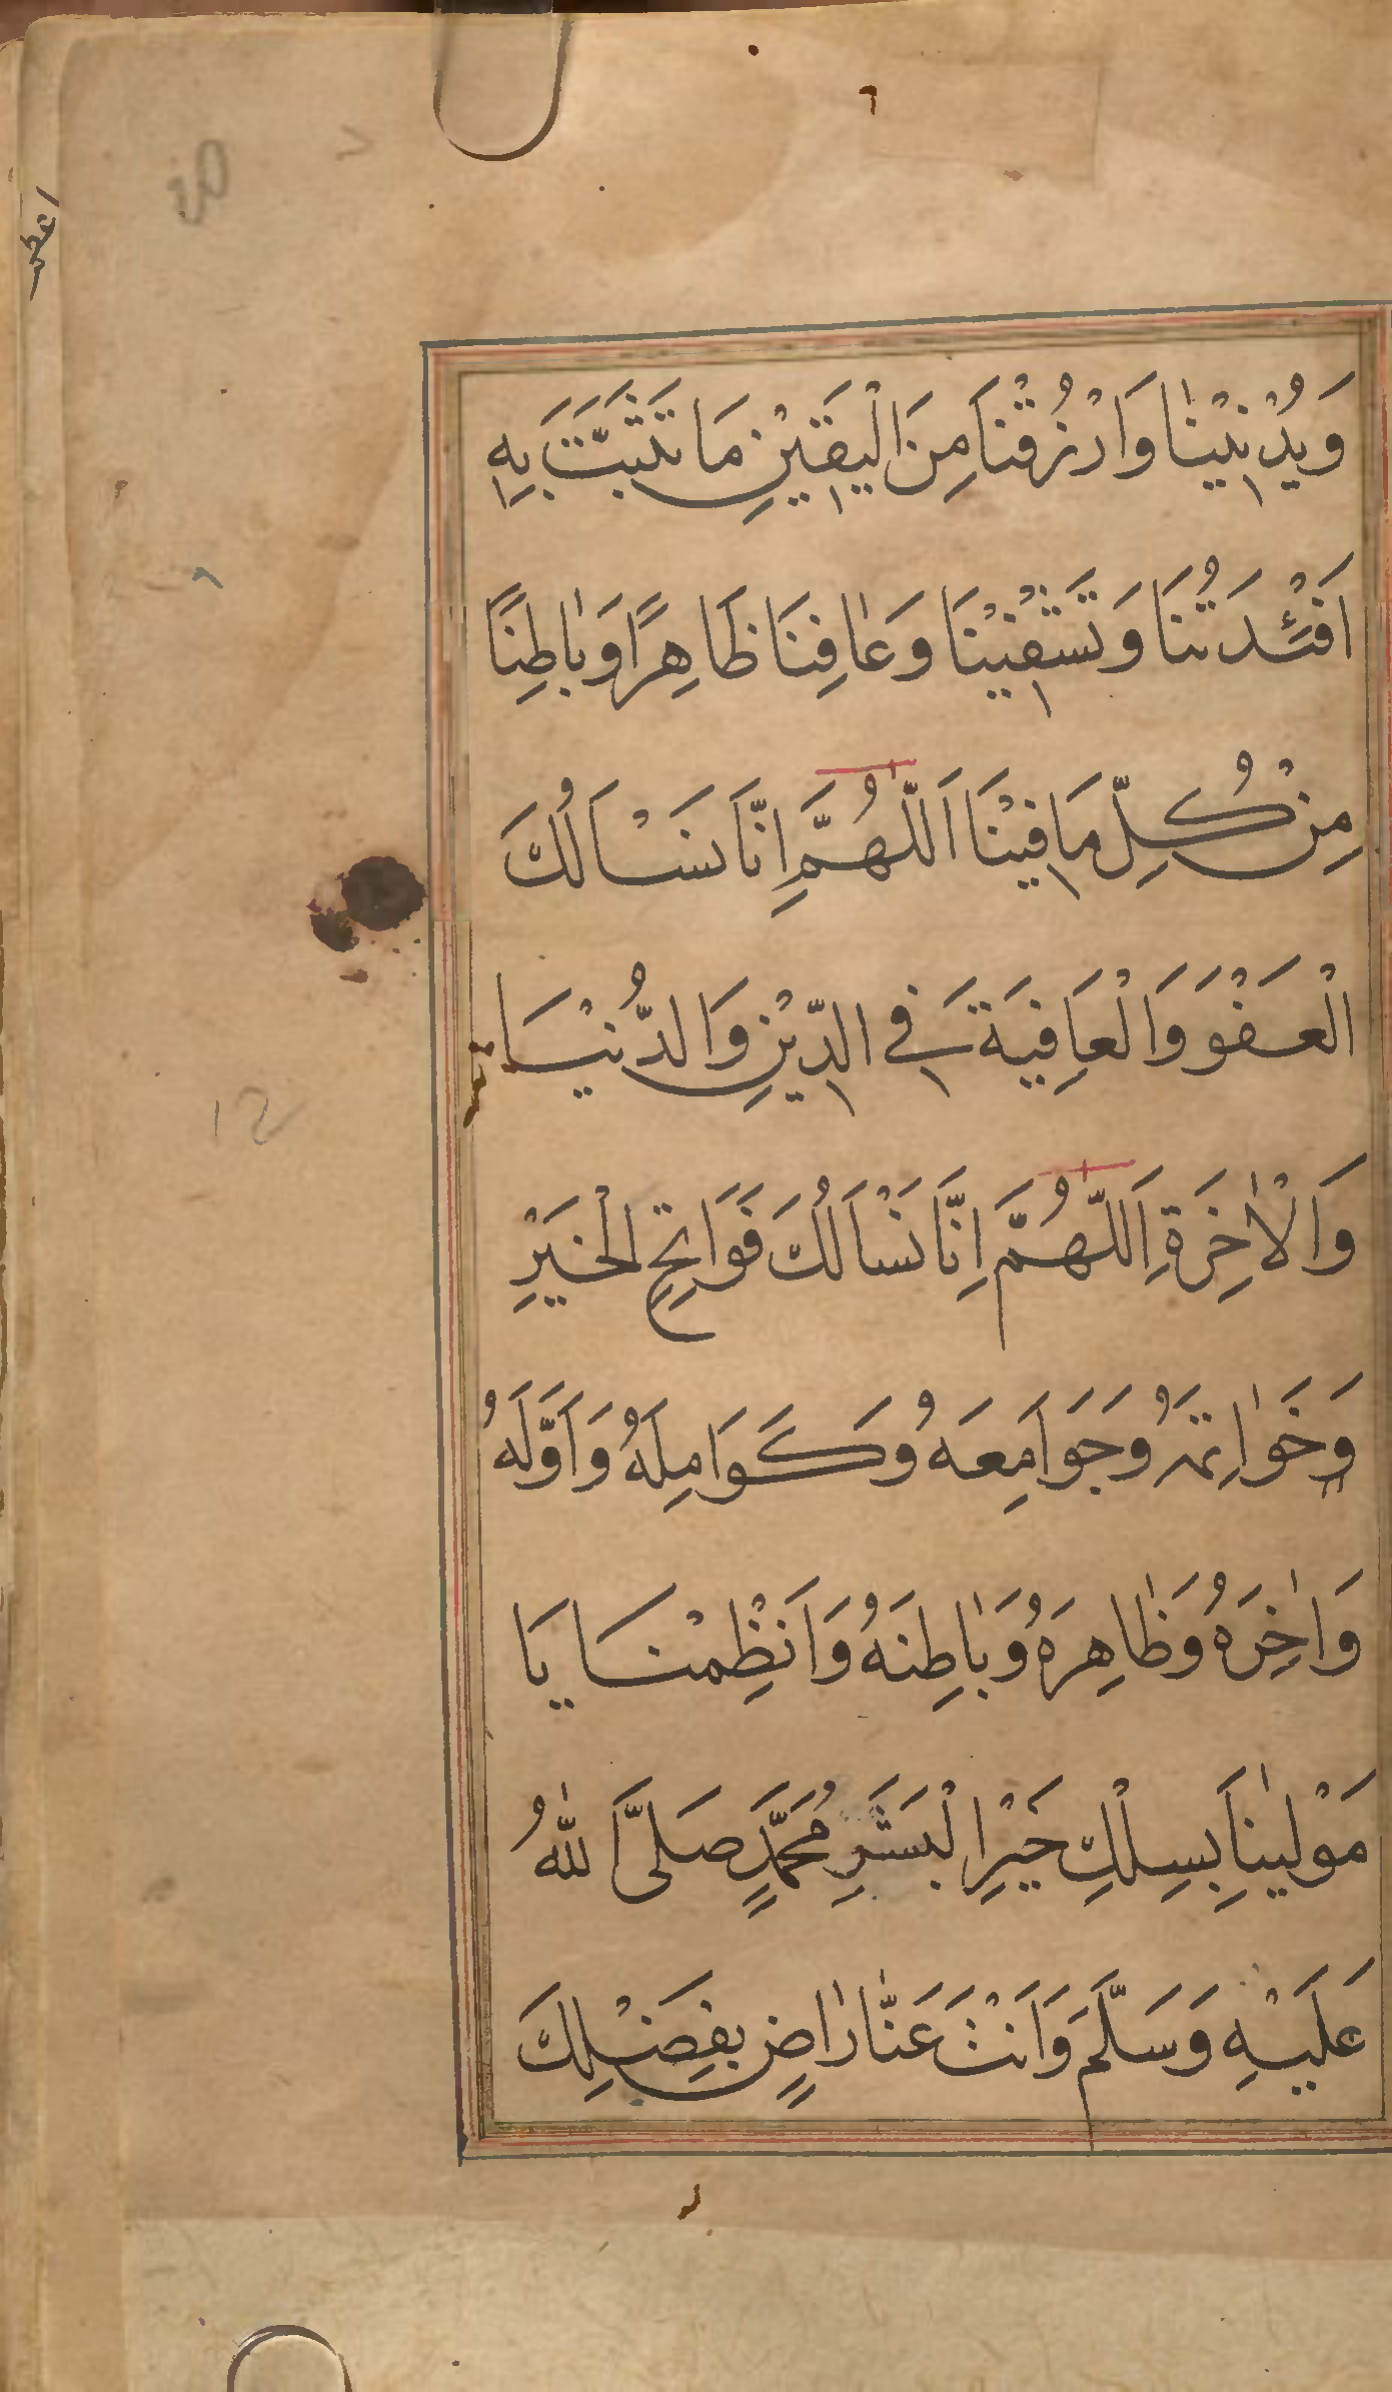 ٦
وَيُدْنِيْنٰا وَارْزُقْنَا مِنَ الْيَقِيْنِ مَا تَثَبَّتَ بِهٖ
اَفْئِدَتُنَا وَتَشْفِيْنَا وَعٰافِنَا ظَاهِرًا وَبٰاطِنًا
مِنْ كُلِّ مَا فِيْنَا اَللّٰهُمَّ اِنَّا نَسْاَلُكَ
الْعَفْوَ وَالْعَافِيَةَ فِي الدِّيْنِ وَالدُّنْيَا
وَالْاٰخِرَةِ اَللّٰهُمَّ اِنَّا نَسْاَلُكَ فَوَاتِحَ الْخَيْرِ
وَخَوٰاتِمَهُ وَجَوَامِعَهُ وَكَوَامِلَهُ وَاَوَّلَهُ
وَاٰخِرَهُ وَظٰاهِرَهُ وَبٰاطِنَهُ وَانْظِمْنَا يَا
مَوْلٰينَا بِسِلْكِ خَيْرِ الْبَشَرِ مُحَمَّدٍ صَلَّى اللّٰهُ
عَلَيْهِ وَسَلَّمَ وَاَنْتَ عَنَّا رٰاضٍ بِفَضْلِكَ
12